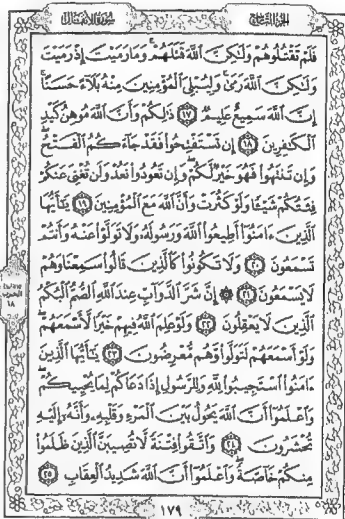 الجزء التاسع
سورة الأنفال
فَلَمْ تَقْتُلُوهُمْ وَلَٰكِنَّ ٱللَّهَ قَتَلَهُمْ وَمَا رَمَيْتَ إِذْ رَمَيْتَ
وَلَٰكِنَّ ٱللَّهَ رَمَىٰ وَلِيُبْلِيَ ٱلْمُؤْمِنِينَ مِنْهُ بَلَآءً حَسَنًا
إِنَّ ٱللَّهَ سَمِيعٌ عَلِيمٌ ١٧ ذَٰلِكُمْ وَأَنَّ ٱللَّهَ مُوهِنُ كَيْدِ
ٱلْكَٰفِرِينَ ١٨ إِن تَسْتَفْتِحُوا۟ فَقَدْ جَآءَكُمُ ٱلْفَتْحُ
وَإِن تَنتَهُوا۟ فَهُوَ خَيْرٌ لَّكُمْ وَإِن تَعُودُوا۟ نَعُدْ وَلَن تُغْنِىَ عَنكُمْ
فِئَتُكُمْ شَيْـًٔا وَلَوْ كَثُرَتْ وَأَنَّ ٱللَّهَ مَعَ ٱلْمُؤْمِنِينَ ١٩ يَٰٓأَيُّهَا
ٱلَّذِينَ ءَامَنُوٓا۟ أَطِيعُوا۟ ٱللَّهَ وَرَسُولَهُۥ وَلَا تَوَلَّوْا۟ عَنْهُ وَأَنتُمْ
تَسْمَعُونَ ٢٠ وَلَا تَكُونُوا۟ كَٱلَّذِينَ قَالُوا۟ سَمِعْنَا وَهُمْ
لَا يَسْمَعُونَ ٢١ ۞ إِنَّ شَرَّ ٱلدَّوَآبِّ عِندَ ٱللَّهِ ٱلصُّمُّ ٱلْبُكْمُ
ٱلَّذِينَ لَا يَعْقِلُونَ ٢٢ وَلَوْ عَلِمَ ٱللَّهُ فِيهِمْ خَيْرًا لَّأَسْمَعَهُمْ
وَلَوْ أَسْمَعَهُمْ لَتَوَلَّوا۟ وَّهُم مُّعْرِضُونَ ٢٣ يَٰٓأَيُّهَا ٱلَّذِينَ
ءَامَنُوا۟ ٱسْتَجِيبُوا۟ لِلَّهِ وَلِلرَّسُولِ إِذَا دَعَاكُمْ لِمَا يُحْيِيكُمْ
وَٱعْلَمُوٓا۟ أَنَّ ٱللَّهَ يَحُولُ بَيْنَ ٱلْمَرْءِ وَقَلْبِهِۦ وَأَنَّهُۥٓ إِلَيْهِ
تُحْشَرُونَ ٢٤ وَٱتَّقُوا۟ فِتْنَةً لَّا تُصِيبَنَّ ٱلَّذِينَ ظَلَمُوا۟
مِنكُمْ خَآصَّةً وَٱعْلَمُوٓا۟ أَنَّ ٱللَّهَ شَدِيدُ ٱلْعِقَابِ ٢٥
الحزب
١٨
١٧٩